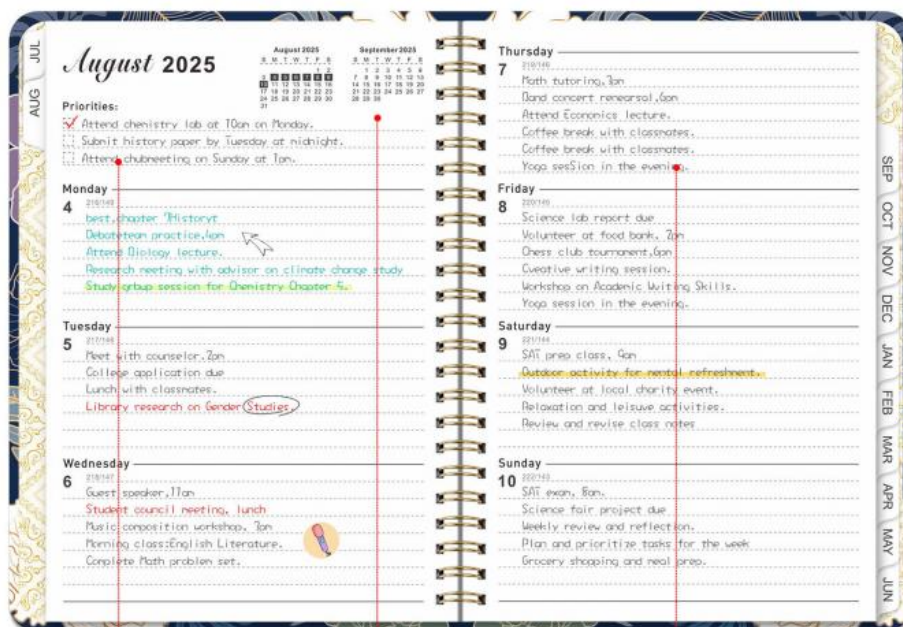 JUL
AUG
August 2025
August 2025
S M T W T F S
1 2
3 4 5 6 7 8 9
10 11 12 13 14 15 16
17 18 19 20 21 22 23
24 25 26 27 28 29 30
31
September 2025
S M T W T F S
1 2 3 4 5 6
7 8 9 10 11 12 13
14 15 16 17 18 19 20
21 22 23 24 25 26 27
28 29 30
Priorities:
Attend chenistry lab at 10am on Monday.
Subnit history paper by Tuesday at nidnight.
Attend chubneeting on Sunday at 1pm.
Monday
4
216/149
best,chapter 7Historyt
Debateteam practice,4pm
Attend Biology lecture.
Research neeting with advisor on clinate change study
Study grbup session for Chenistry Chapter 5.
Tuesday
5
217/148
Meet with counselor,2pn
College application due
Lunch with classnates.
Library research on Gender Studies.
Wednesday
6
218/147
Guest speaker,11an
Student council neeting, lunch
Music conposition workshop, 3pn
Morning class:English Literature.
Conplete Math problen set.
Thursday
7
219/146
Math tutoring,3pm
Band concert renearsal,6pm
Attend Economics lecture.
Coffee break with classnates.
Coffee break with classnates.
Yoga sesSion in the evening.
Friday
8
220/145
Science lab report due
Volunteer at food bank, 2pn
Chess club tournanent,6pn
Cveative writing session.
Workshop on Acadenic Wviting Skills.
Yoga session in the evening.
Saturday
9
221/144
SAT prep class, 9an
Outdoor activity for nental refreshnent.
Volunteer at local charity event.
Relaxation and leisuve activities.
Review and revise class notes
Sunday
10
222/143
SAT exan, 8an.
Science fair project due
Weekly review and reflection.
Plan and prioritize tasks for the week
Grocery shopping and neal prep.
SEP
OCT
NOV
DEC
JAN
FEB
MAR
APR
MAY
JUN